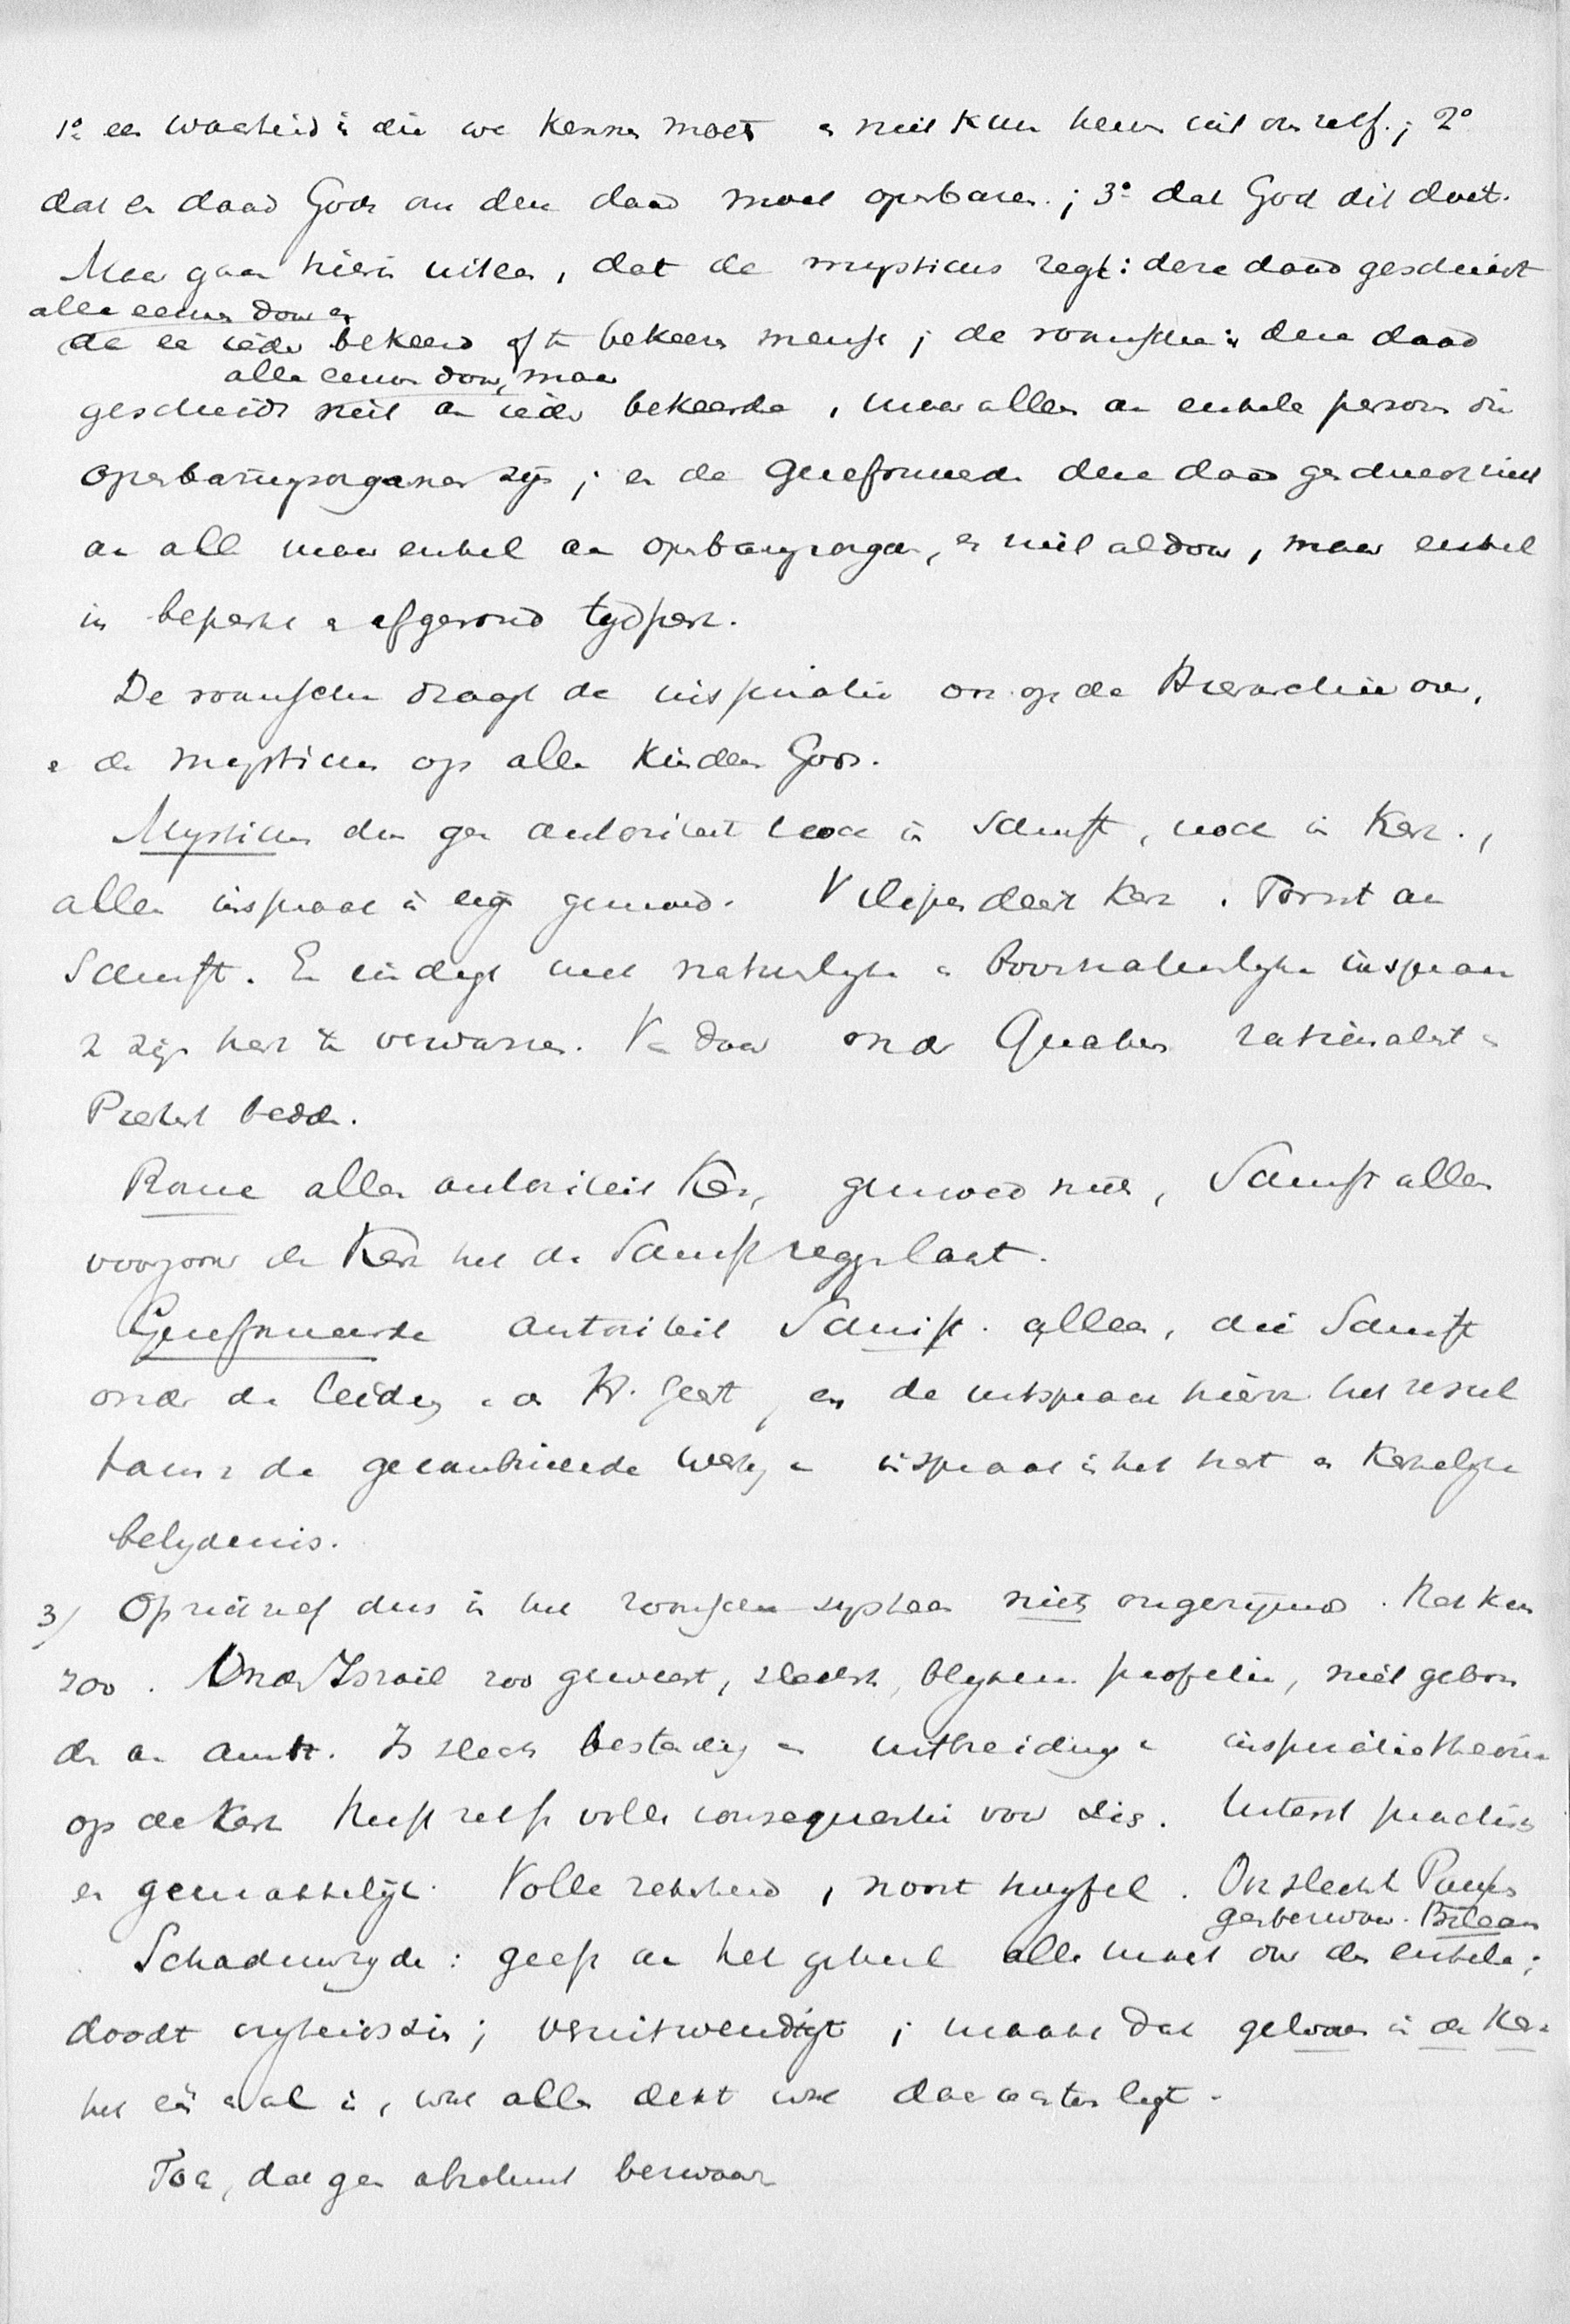 1º een waarheid is die we kennen moet en niet kunnen uit ons zelf.; 2º
dat en daad Gods on den daad moet openbaren.; 3º dat God dit doet.
Maar gaan hierin uiteen, dat de mysticus zegt: deze daad geschiedt
alle eeuwen door en
de ieder bekeerd of te bekeeren mensch; de roomsche: deze daad
alle eeuwen door, maar
geschiedt niet an ieder bekeerde, maar alleen an enkele personen die
openbaringsorganen zijn; en de Gereformeerde deze daad geschiedt niet
an alle maar enkel an openbaringsorgaan, en niet aldoor, maar enkel
in beperkt en afgerond tijdperk.
De roomsche draagt de inspiratie op de Hierarchie over,
en de mysticus op alle kinderen Gods.
Mysticus geen autoriteit noch in Schrift, noch in Kerk.,
alleen inspraak in eigen gemoed. Kerk. Tornt an
Schrift. En eindigt met natuurlijke en bovennatuurlijke inspraak
in zijn hart te verwarren. Van daar onder Quakers rationalist en
Rome alleen autoriteit Kerk, gemoed niet, Schrift alleen
voorzoover de Kerk het de Schrift
Gereformeerde autoriteit Schrift alleen, die Schrift
onder de leiding v. d. H. Geest, en de uitspraak hierv. het resul
taat v. de gecombineerde werking v. inspraak in het hart en Kerkelijke
belijdenis.
3) Op zich zelf dus is het roomschen systeem niets ongerijmds. Het kan
zoo. Onder Israel zoo geweest, slechts, blijkens profetie, niet gebon
den an ambt. Is slechts bestendiging en uitbreiding v. inspiratietheorie
op de Kerk. Heeft zelfs volle consequentie voor zich. Uiterst practisch
en gemakkelijk. Volle zekerheid, nooit twijfel. Ook slechte Pausen
geen bezwaar. Bileam
Schaduwzijde: geeft an het geheel alle macht over den enkele;
doodt vrijheidszin; veruitwendigt; maakt dat gelooven in de Kerk
het één en al is, wat alles dekt wat daarachter ligt.
Toch, dat geen absoluut bezwaar